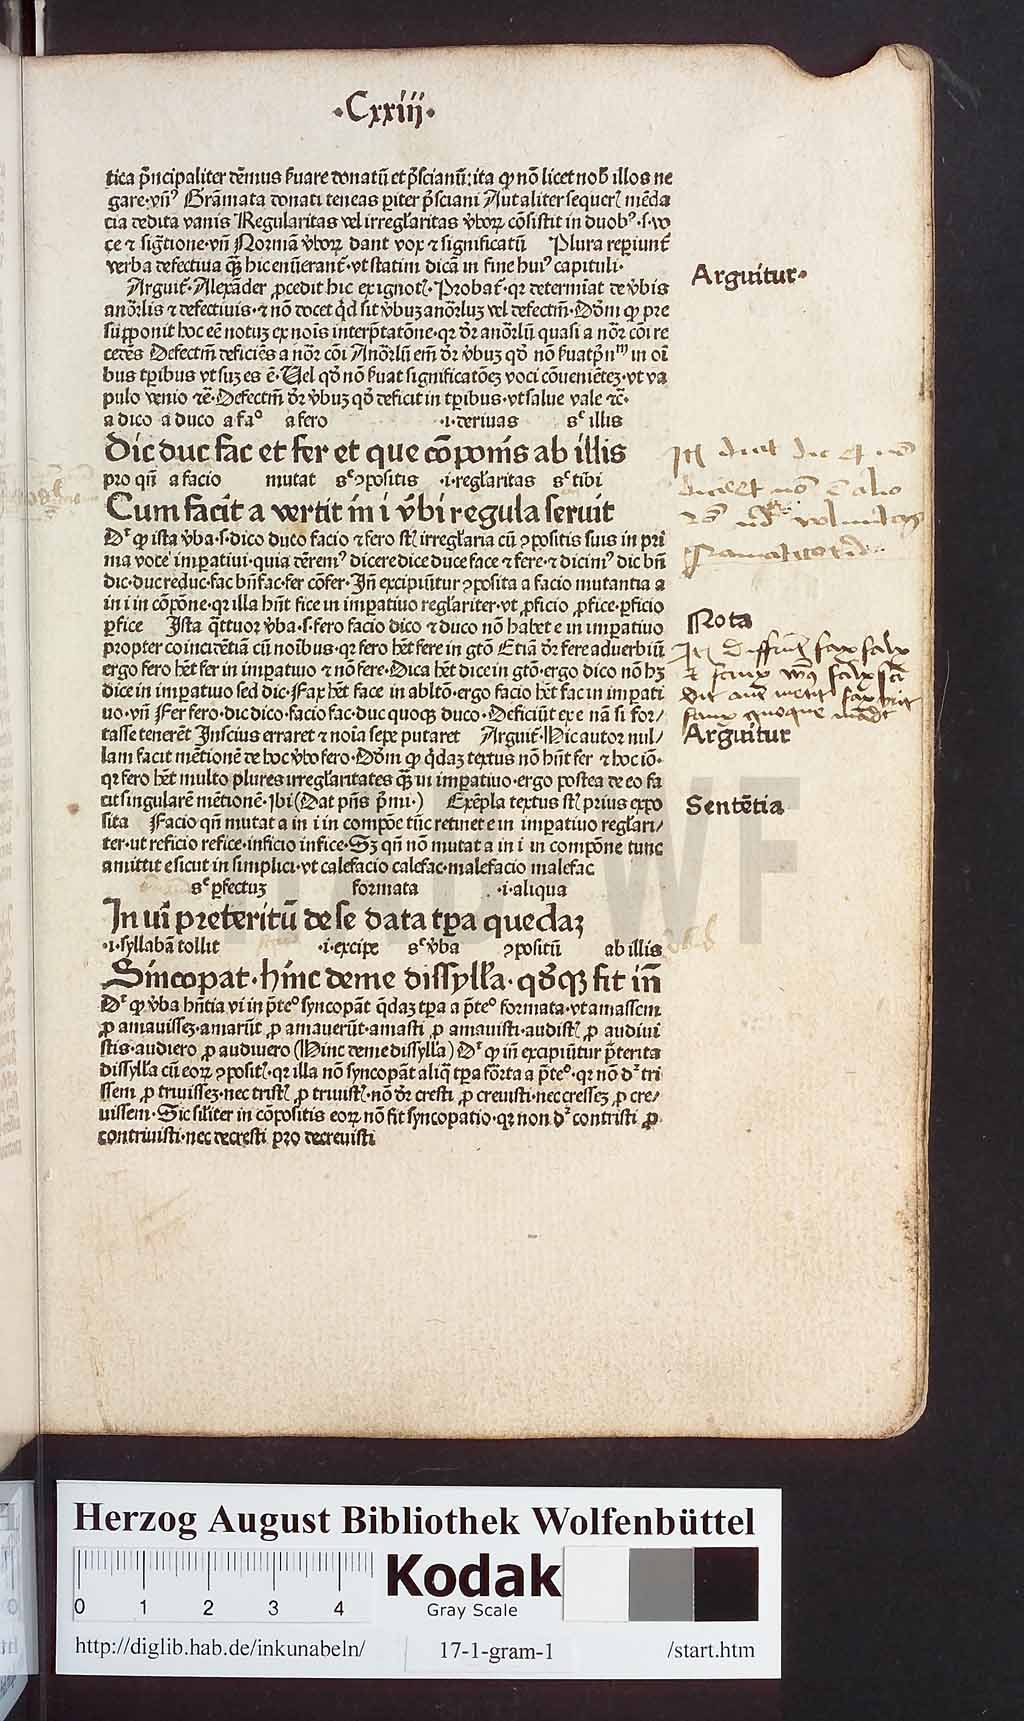 ·Cxxiij·
tica p̄ncipaliter tēmius ẜuare donatū et p̄scianū: ita ꝙ nō licet nob̄ illos ne
gare·vn̄ꝰ Grāmata donati teneas ꝑiter p̄sciani Aut aliter sequerꝭ mēda
cia dedita vanis Regularitas vel irregl̓aritas v̓boꝝ cōsistit in duobꝰ·s·vo
ce ⁊ sigt̄ione·vn̄ Normā v̓boꝝ dant vox ⁊ significatū Plura reꝑiunt̄
verba defectiua q̄ꝫ hic enūerant̄·vt statim dicā in fine huiꝰ capituli·
Arguit̄·Alexāder ꝓcedit hic ex ignotꝭ·Probat̄·qꝛ determīat de v̓bis
anōrlis ⁊ defectiuis·⁊ nō docet qͥd sit v̓buꝫ anōrluꝫ vel defectm̄·Dd̄m ꝙ pre
supponit hoc eē notuꝫ ex noīs interp̄tatōne·qꝛ dr̄ anōrlū quasi a nōr cōi re
cedēs Defectm̄ deficiēs a nōr cōi Anōrlū em̄ dr̄ v̓buꝫ qd̓ nō ẜuat p̄nᵐ in oī
bus tꝑibus vt suꝫ es ē·Uel qd̓ nō ẜuat significatōeꝫ voci cōuenientēꝫ·vt va
pulo venio ⁊c̄·Defectm̄ dr̄ v̓buꝫ qd̓ deficit in tꝑibus·vt salue vale ⁊c̄·
a dico a duco a faᵒ a fero ·i·deriuas sᶜ illis
Dic duc fac et fer et que cōponis ab illis
pro qn̄ a facio mutat sᶜ ꝯpositis ·i·regl̓aritas sᶜ tibi
Cum facīt a vertit in i v̓bi regula seruit
Dʳ ꝙ ista v̓ba·s·dico duco facio ⁊ fero st̄ irregl̓aria cū ꝯpositis suis in pri
ma voce imꝑatiui·quia dēremꝰ dicere dice duce face ⁊ fere·⁊ dicimꝰ dic bn̄
dic·duc reduc·fac bn̄fac·fer cōfer·In̄ excipiūtur ꝯposita a facio mutantia a
in i in cōpōne·qꝛ illa hn̄t fice in imꝑatiuo regl̓ariter·vt ꝓficio ꝓfice·ꝑficio
ꝑfice Ista q̄ttuor v̓ba·s·fero facio dico ⁊ duco nō habet e in imꝑatiuo
propter coincidētiā cū noībus·qꝛ fero hēt fere in gtō Etiā dr̄ fere aduerbiū
ergo fero hēt fer in imꝑatiuo ⁊ nō fere·Dica hēt dice in gtō·ergo dico nō hꝫ
dice in imꝑatiuo sed dic·Fax hēt face in abltō·ergo facio hēt fac in imꝑati
uo·vn̄ Fer fero·dic dico·facio fac·duc quoqꝫ duco·Deficiūt ex e nā si for/
tasse tenerēt Inscius erraret ⁊ noīa sepe putaret Arguit̄·Hic autor nul/
lam facit mētionē de hoc v̓bo fero·Dd̄m ꝙ qͥdaꝫ textus nō hn̄t fer ⁊ hoc iō·
qꝛ fero hēt multo plures irregl̓aritates q̄ꝫ in imꝑatiuo·ergo postea de eo fa
cit singularē mētionē·Ibi (Dat pn̄s p̄mi·) Exēpla textus st̄ prius expo
sita Facio qn̄ mutat a in i in compōe tūc retinet e in imꝑatiuo regl̓ari/
ter·ut reficio refice·inficio infice·Sꝫ qn̄ nō mutat a in i in compōne tunc
amittit e sicut in simplici·vt calefacio calefac·malefacio malefac
sᶜ ꝑfectuꝫ formata ·i·aliqua
In ui preteritū de se data tꝑa quedaꝫ
·i·syllabā tollit ·i·excipe sᶜ v̓ba ꝯpositū ab illis
Sincopat·hinc deme dissyll̓a·qd̓qꝫ fit in̄
Dʳ ꝙ v̓ba hn̄tia vi in p̄teᵒ syncopāt qͥdaꝫ tꝑa a p̄teᵒ formata·vt amassem
ꝓ amauisseꝫ·amarūt ꝓ amauerūt·amasti ꝓ amauisti·audistꝭ ꝓ audiui
stis·audiero ꝓ audiuero (Hinc deme dissyll̓a) Dʳ ꝙ in̄ excipiūtur p̄terita
dissyll̓a cū eoꝝ ꝯpositꝭ·qꝛ illa nō syncopāt aliq̄ tꝑa fōrta a p̄teᵒ·qꝛ nō dꝛ̄ tri
ssem ꝓ triuisseꝫ·nec tristꝭ ꝓ triuistꝭ·nō dr̄ cresti ꝓ creuisti·nec cresseꝫ ꝓ cre/
uissem·Sic silīter in cōpositis eoꝝ nō fit syncopatio·qꝛ non dꝛ̄ contristi ꝓ
contriuisti·nec decresti pro decreuisti
Arguitur·
Nota
Arguitur
Sentētia
Herzog August Bibliothek Wolfenbüttel
0 1 2 3 4
Kodak
Gray Scale
http://diglib.hab.de/inkunabeln/ 17-1-gram-1 /start.htm